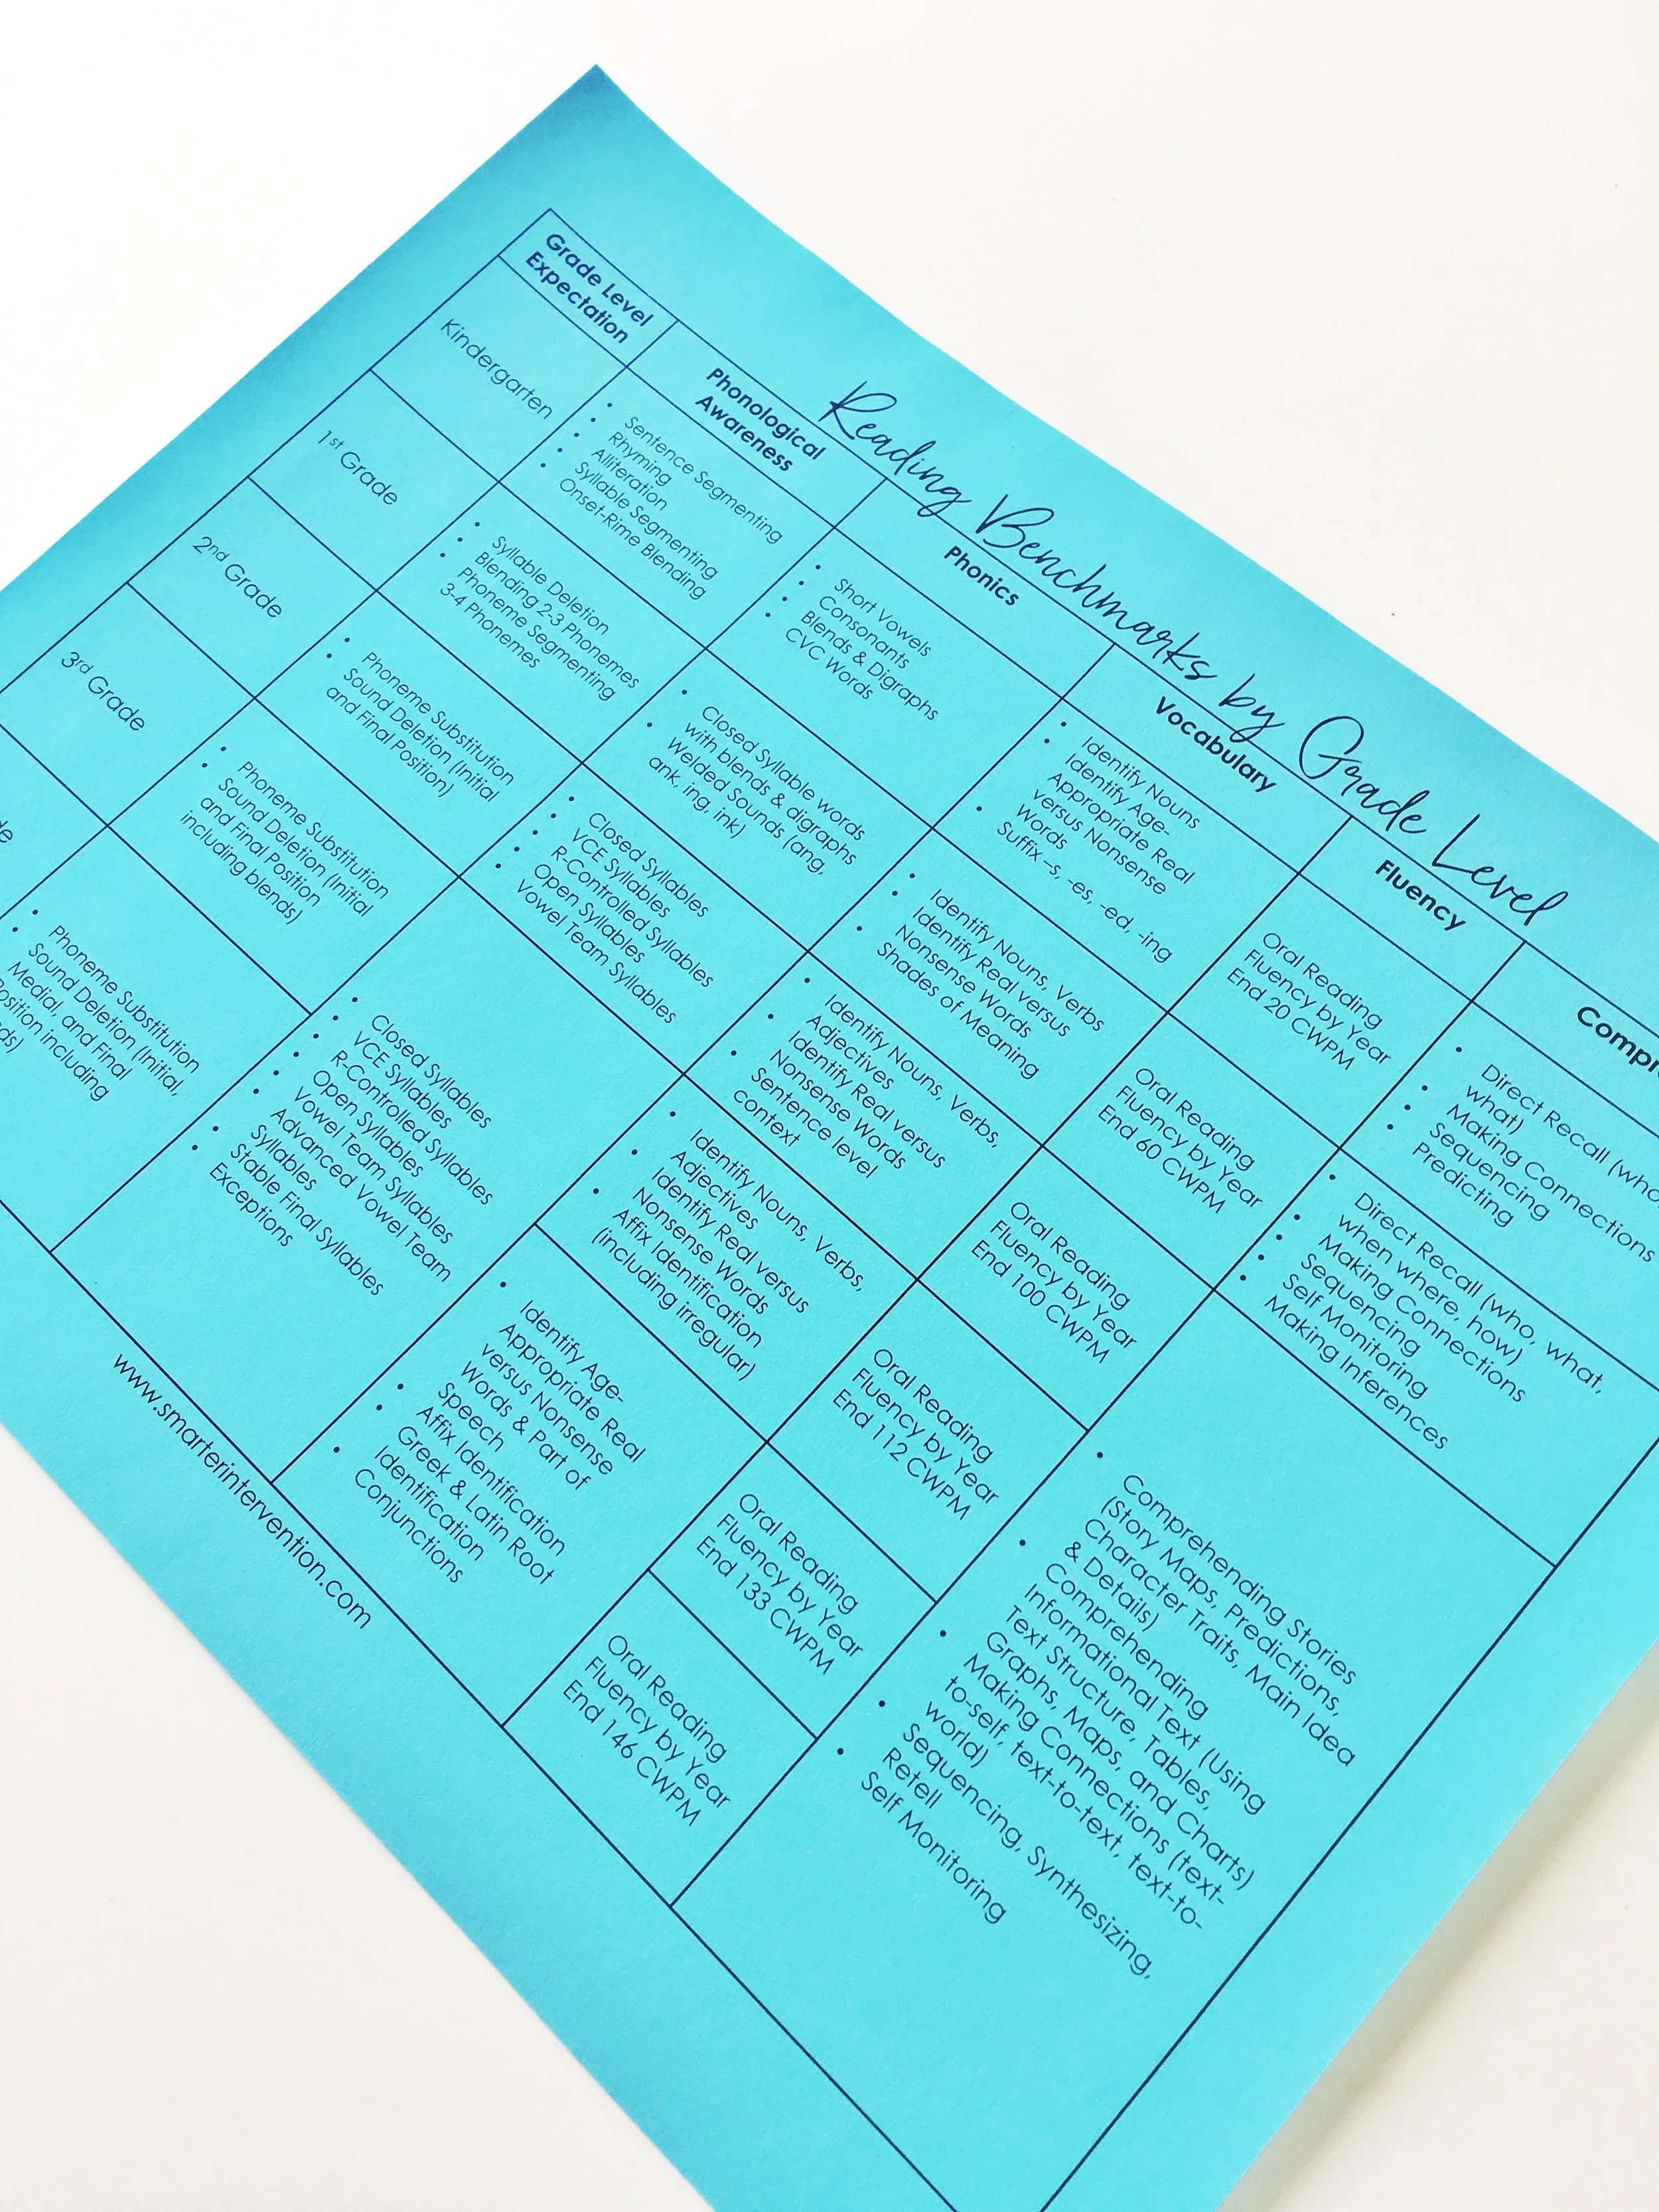 Reading Benchmarks by Grade Level
Grade Level
Expectation
Phonological
Awareness
Phonics
Vocabulary
Fluency
Kindergarten
• Sentence Segmenting
• Rhyming
• Alliteration
• Syllable Segmenting
• Onset-Rime Blending
• Short Vowels
• Consonants
• Blends & Digraphs
• CVC Words
• Identify Nouns
• Identify Age-
Appropriate Real
versus Nonsense
Words
• Suffix –s, -es, -ed, -ing
Oral Reading
Fluency by Year
End 20 CWPM
• Direct Recall (who,
what)
• Making Connections
• Sequencing
• Predicting
1st Grade
• Syllable Deletion
• Blending 2-3 Phonemes
• Phoneme Segmenting
3-4 Phonemes
• Closed Syllable words
with blends & digraphs
• Welded Sounds (ang,
ank, ing, ink)
• Identify Nouns, Verbs
• Identify Real versus
Nonsense Words
• Shades of Meaning
Oral Reading
Fluency by Year
End 60 CWPM
• Direct Recall (who, what,
when where, how)
• Making Connections
• Sequencing
• Self Monitoring
• Making Inferences
2nd Grade
• Phoneme Substitution
• Sound Deletion (Initial
and Final Position)
• Closed Syllables
• VCE Syllables
• R-Controlled Syllables
• Open Syllables
• Vowel Team Syllables
• Identify Nouns, Verbs,
Adjectives
• Identify Real versus
Nonsense Words
• Sentence level
context
Oral Reading
Fluency by Year
End 100 CWPM
3rd Grade
• Phoneme Substitution
• Sound Deletion (Initial
and Final Position
including blends)
• Closed Syllables
• VCE Syllables
• R-Controlled Syllables
• Open Syllables
• Vowel Team Syllables
• Advanced Vowel Team
Syllables
• Stable Final Syllables
• Exceptions
• Identify Nouns, Verbs,
Adjectives
• Identify Real versus
Nonsense Words
• Affix Identification
(including irregular)
Oral Reading
Fluency by Year
End 112 CWPM
• Comprehending Stories
(Story Maps, Predictions,
Character Traits, Main Idea
& Details)
• Comprehending
Informational Text (Using
Text Structure, Tables,
Graphs, Maps, and Charts)
• Making Connections (text-
to-self, text-to-text, text-to-
world)
• Sequencing, Synthesizing,
Retell
• Self Monitoring
• Phoneme Substitution
• Sound Deletion (Initial,
Medial, and Final
Position including
• Identify Age-
Appropriate Real
versus Nonsense
Words & Part of
Speech
• Affix Identification
• Greek & Latin Root
Identification
• Conjunctions
Oral Reading
Fluency by Year
End 133 CWPM
Oral Reading
Fluency by Year
End 146 CWPM
www.smarterintervention.com